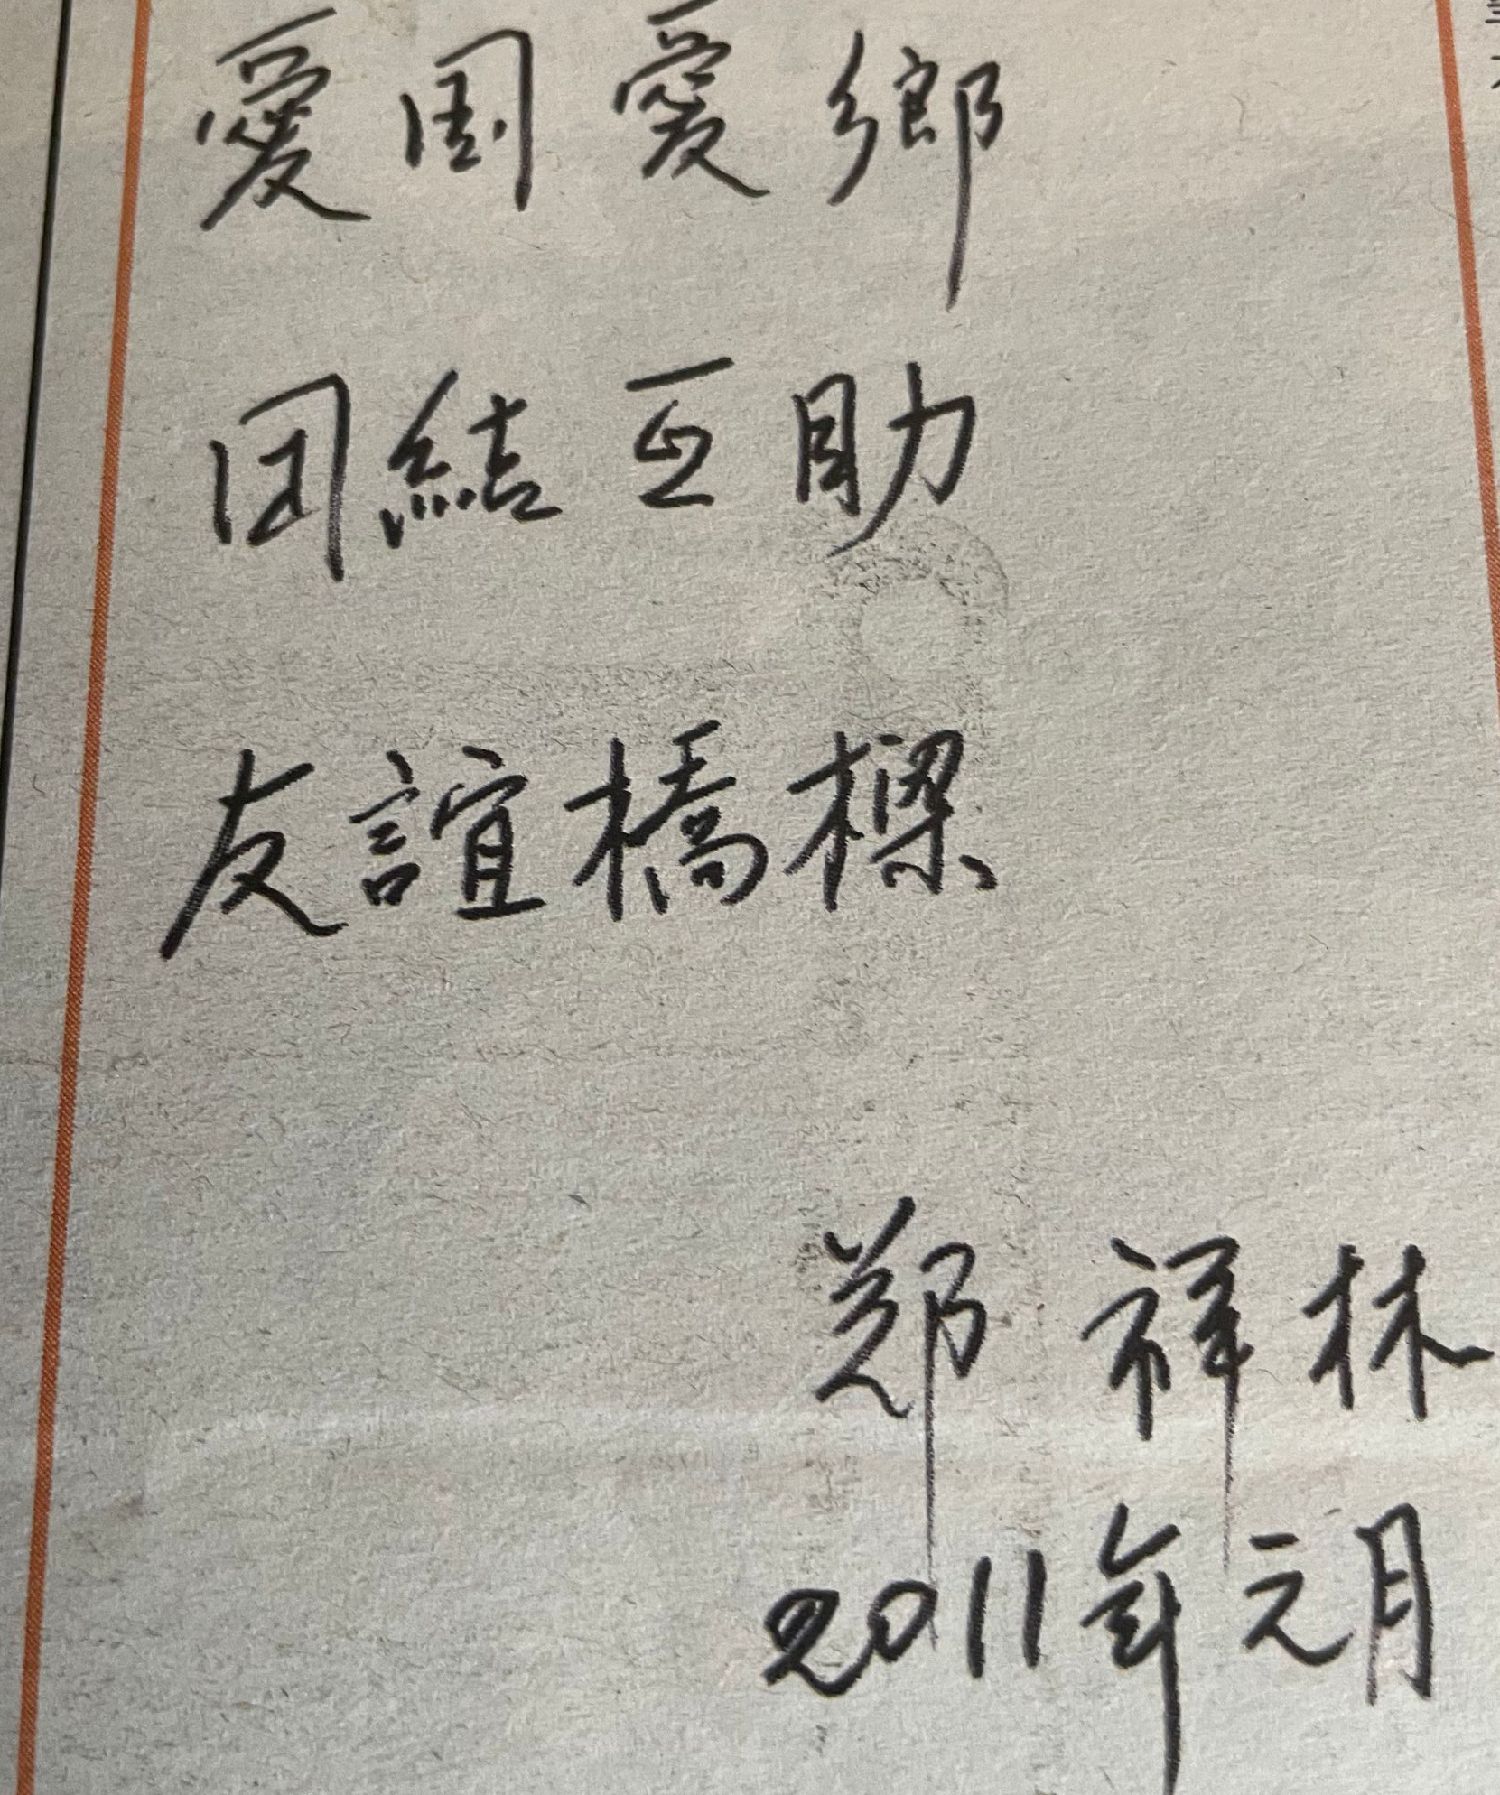 愛国愛鄉
团結互助
友誼橋樑
郑祥林
2011年元月